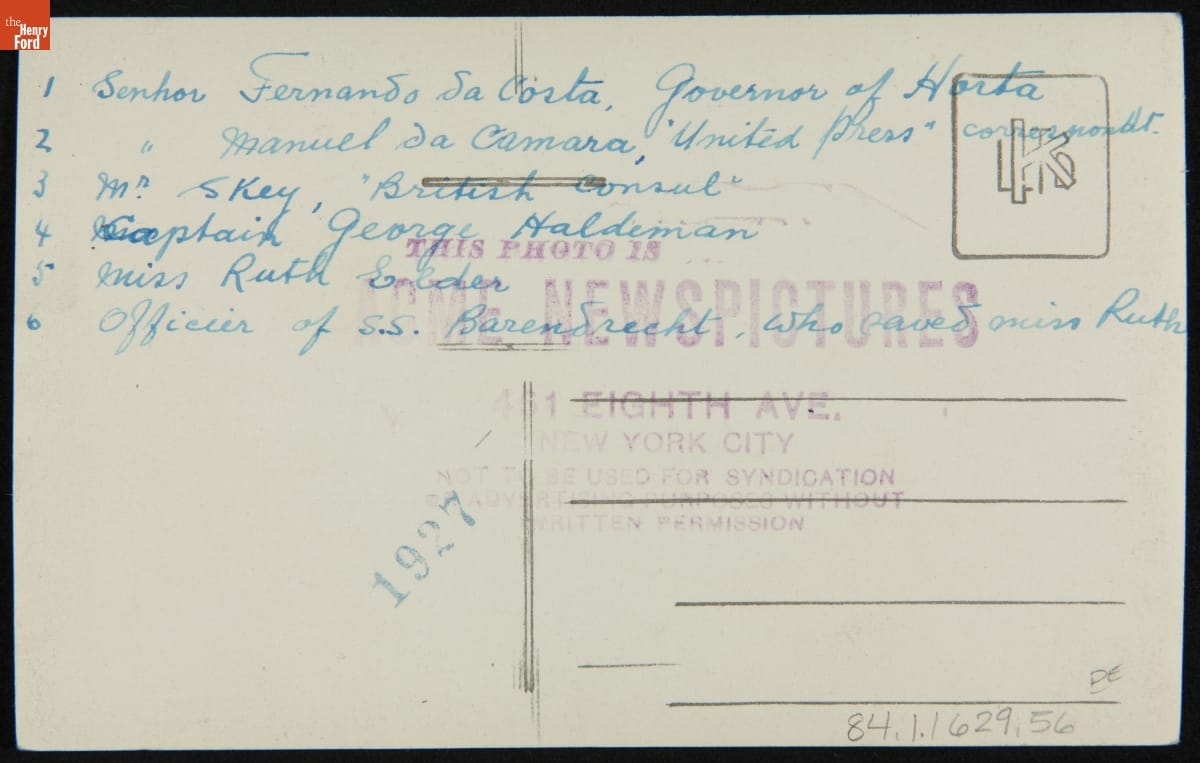 the
Henry
Ford
1 Senhor Fernando da Costa, Governor of Horta
2 " Manuel da Camara, "United Press" correspondt.
3 Mr Skey, "British Consul"
4 Captain George Haldeman
THIS PHOTO IS
5 Miss Ruth Elder
ACME NEWSPICTURES
6 Officier of S.S. Barendrecht, who saved miss Ruth
461 EIGHTH AVE.
NEW YORK CITY
NOT TO BE USED FOR SYNDICATION
OR ADVERTISING PURPOSES WITHOUT
WRITTEN PERMISSION
1927
DE
84.1.1629.56